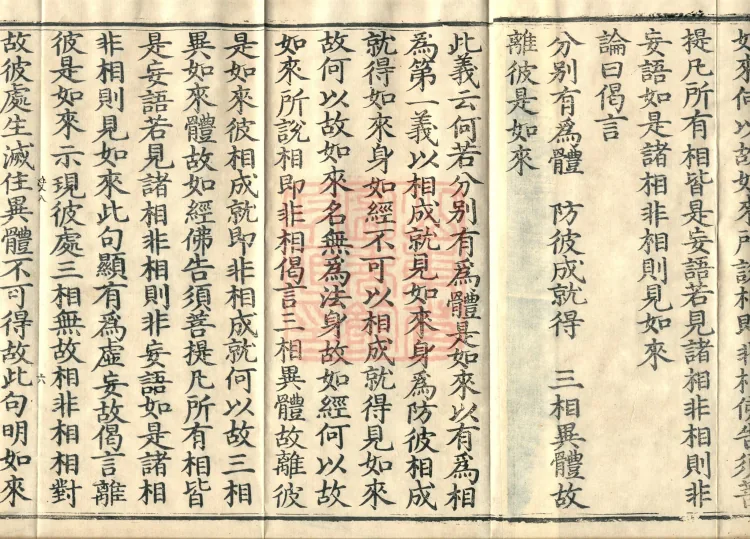 如來何以故如來所說相即非相佛告須菩
提凡所有相皆是妄語若見諸相非相則非
妄語如是諸相非相則見如來
論曰偈言
分别有爲體　防彼成就得　三相異體故
離彼是如來
此義云何若分别有爲體是如來以有爲相
爲第一義以相成就見如來身爲防彼相成
就得如來身如經不可以相成就得見如來
故何以故如來名無爲法身故如經何以故
如來所說相即非相偈言三相異體故離彼
是如來彼相成就即非相成就何以故三相
異如來體故如經佛告須菩提凡所有相皆
是妄語若見諸相非相則非妄語如是諸相
非相則見如來此句顯有爲虛妄故偈言離
彼是如來示現彼處三相無故相非相相對
六
故彼處生滅住異體不可得故此句明如來